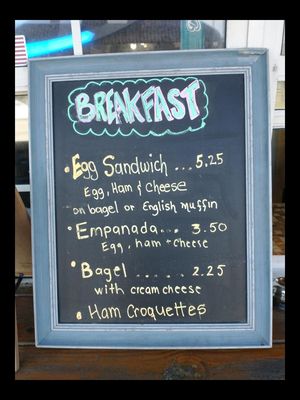 BREAKFAST
• Egg Sandwich ... 5.25
Egg, Ham & Cheese
on bagel or English muffin
• Empanada... 3.50
Egg, ham + Cheese
• Bagel ...... 2.25
with cream cheese
• Ham Croquettes